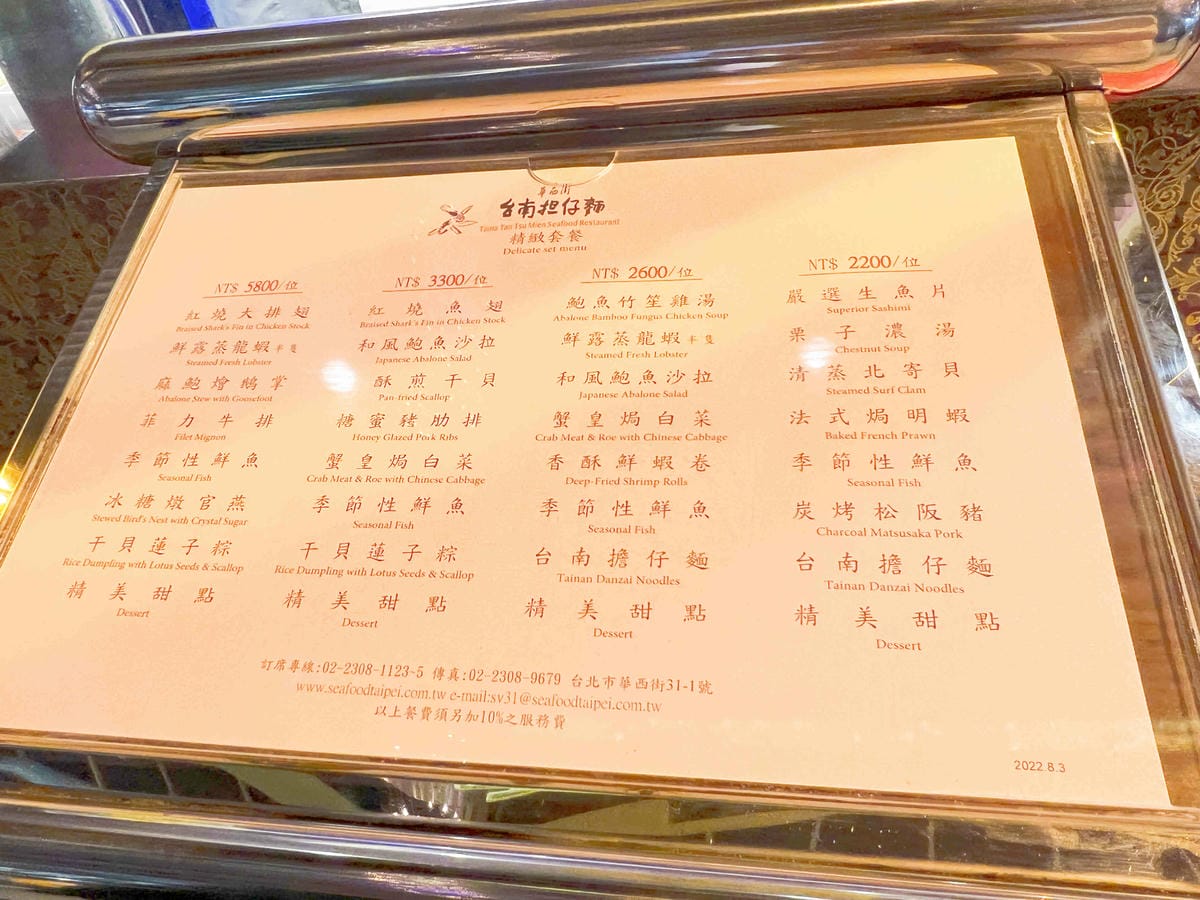 華西街
台南担仔麵
Taina Tan Tsu Mien Seafood Restaurant
精緻套餐
Delicate set menu
NT$ 5800/位
紅燒大排翅
Braised Shark's Fin in Chicken Stock
鮮露蒸龍蝦半隻
Steamed Fresh Lobster
麻鮑燴鵝掌
Abalone Stew with Goosefoot
菲力牛排
Filet Mignon
季節性鮮魚
Seasonal Fish
冰糖燉官燕
Stewed Bird's Nest with Crystal Sugar
干貝蓮子粽
Rice Dumpling with Lotus Seeds & Scallop
精美甜點
Dessert
NT$ 3300/位
紅燒魚翅
Braised Shark's Fin in Chicken Stock
和風鮑魚沙拉
Japanese Abalone Salad
酥煎干貝
Pan-fried Scallop
糖蜜豬肋排
Honey Glazed Pork Ribs
蟹皇焗白菜
Crab Meat & Roe with Chinese Cabbage
季節性鮮魚
Seasonal Fish
干貝蓮子粽
Rice Dumpling with Lotus Seeds & Scallop
精美甜點
Dessert
NT$ 2600/位
鮑魚竹笙雞湯
Abalone Bamboo Fungus Chicken Soup
鮮露蒸龍蝦半隻
Steamed Fresh Lobster
和風鮑魚沙拉
Japanese Abalone Salad
蟹皇焗白菜
Crab Meat & Roe with Chinese Cabbage
香酥鮮蝦卷
Deep-Fried Shrimp Rolls
季節性鮮魚
Seasonal Fish
台南擔仔麵
Tainan Danzai Noodles
精美甜點
Dessert
NT$ 2200/位
嚴選生魚片
Superior Sashimi
栗子濃湯
Chestnut Soup
清蒸北寄貝
Steamed Surf Clam
法式焗明蝦
Baked French Prawn
季節性鮮魚
Seasonal Fish
炭烤松阪豬
Charcoal Matsusaka Pork
台南擔仔麵
Tainan Danzai Noodles
精美甜點
Dessert
訂席專線:02-2308-1123~5 傳真:02-2308-9679 台北市華西街31-1號
www.seafoodtaipei.com.tw e-mail:sv31@seafoodtaipei.com.tw
以上餐費須另加10%之服務費
2022.8.3